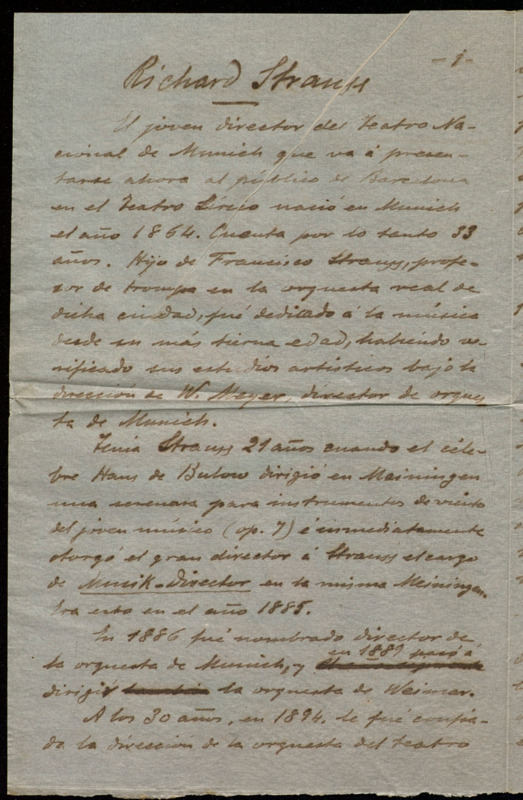 -1-
Richard Strauss
El joven director del Teatro Na-
cional de Munich que va á presen-
tarse ahora al público de Barcelona
en el Teatro Lírico nació en Munich
el año 1864. Cuenta por lo tanto 33
años. Hijo de Francisco Strauss, profe-
sor de trompa en la orquesta real de
dicha ciudad, fué dedicado á la música
desde su más tierna edad, habiendo ve-
rificado sus estudios artísticos bajo la
dirección de W. Meyer, director de orques
ta de Munich.
Tenia Strauss 21 años cuando el céle-
bre Hans de Bulow dirigió en Meiningen
una serenata para instrumentos de viento
del joven músico (op. 7) é inmediatamente
otorgó el gran director á Strauss el cargo
de Musik-Director en la misma Meiningen.
Era esto en el año 1885.
En 1886 fué nombrado director de
la orquesta de Munich, y en 1889 pasó á
dirigir la orquesta de Weimar.
A los 30 años, en 1894, le fué confia-
da la dirección de la orquesta del teatro